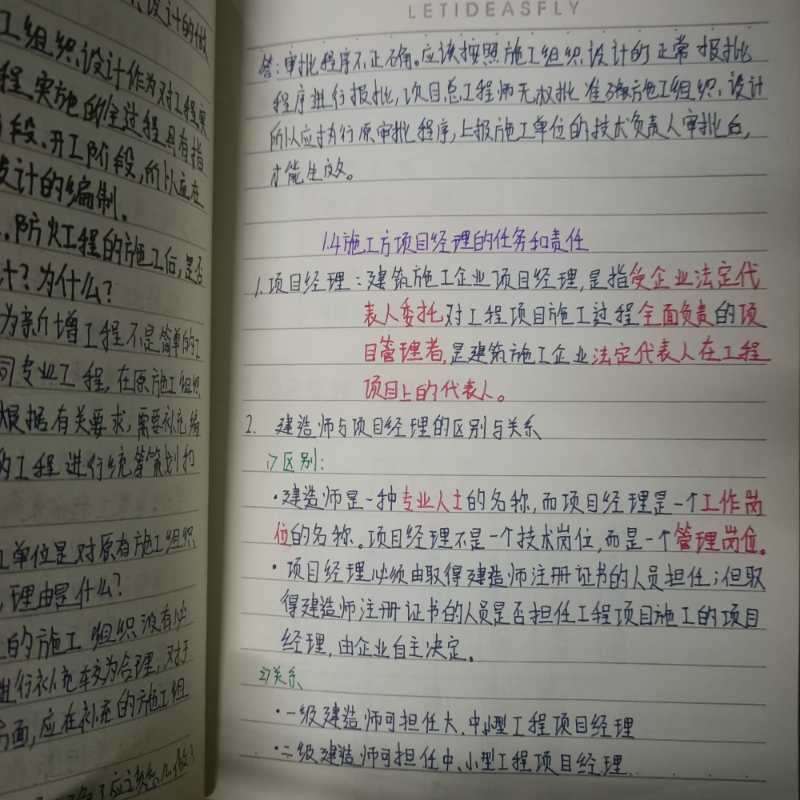 设计的做
工组织设计作为对工程实
程实施的全过程具有指
段、开工阶段,所以应在
设计的编制。
防火工程的施工后,是否
计?为什么?
为新增工程不是简单的工
同专业工程,在原施工组织
根据有关要求,需要补充编
的工程进行统筹策划和
单位是对原有施工组织
,理由是什么?
的施工组织没有必
进行补充较为合理,对于
方面,应在补充的施工组
LETIDEASFLY
答:审批程序不正确。应该按照施工组织设计的正常报批
程序进行报批,项目总工程师无权批准施工组织设计
所以应执行原审批程序,上报施工单位的技术负责人审批后,
才能生效。
1.4施工方项目经理的任务和责任
1.项目经理:建筑施工企业项目经理,是指受企业法定代
表人委托对工程项目施工过程全面负责的项
目管理者,是建筑施工企业法定代表人在工程
项目上的代表人。
2. 建造师与项目经理的区别与关系
1)区别:
·建造师是一种专业人士的名称,而项目经理是一个工作岗
位的名称。项目经理不是一个技术岗位,而是一个管理岗位。
·项目经理必须由取得建造师注册证书的人员担任;但取
得建造师注册证书的人员是否担任工程项目施工的项目
经理,由企业自主决定。
2)关系
·一级建造师可担任大、中小型工程项目经理
·二级建造师可担任中、小型工程项目经理